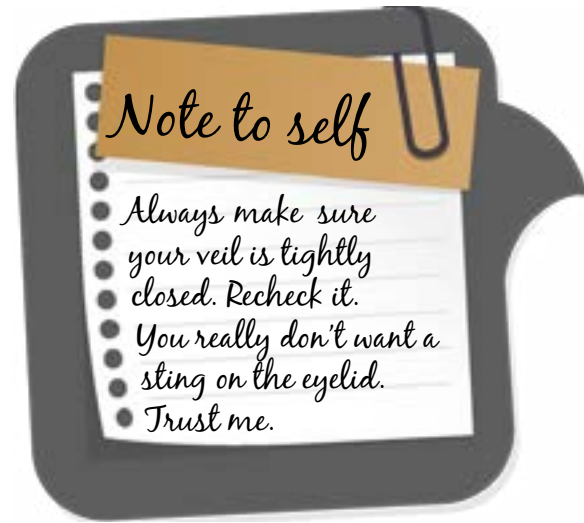 Note to self
Always make sure
your veil is tightly
closed. Recheck it.
You really don't want a
sting on the eyelid.
Trust me.